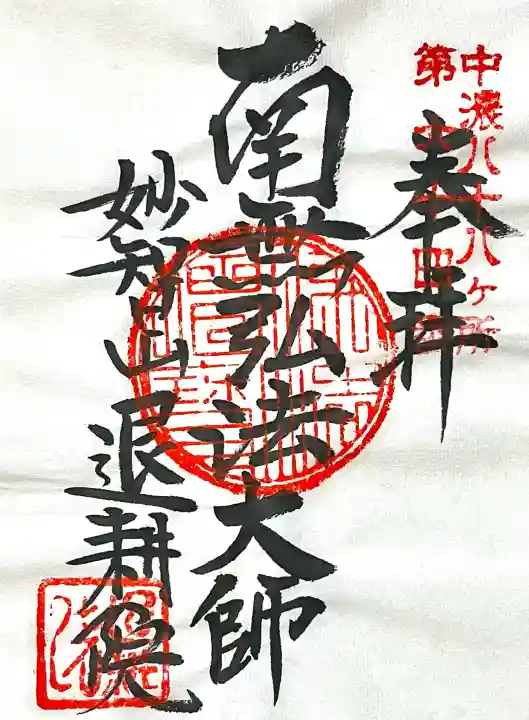 中濃八十八ヶ所
第
奉拝
南無弘法大師
妙智山 退耕院